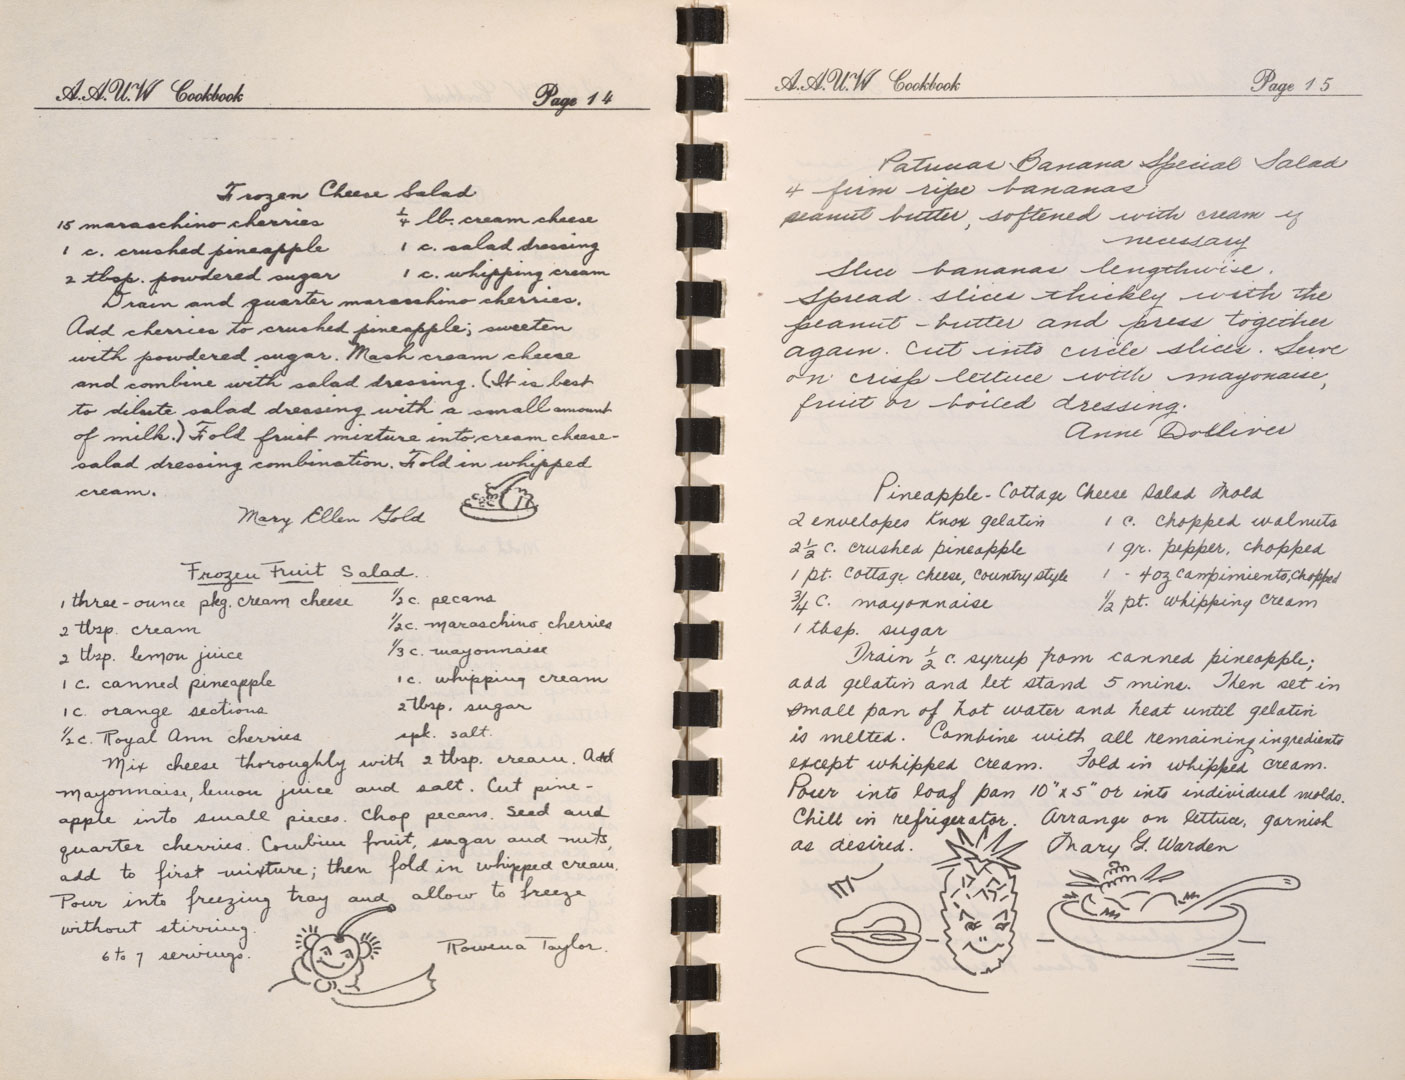 A.A.U.W Cookbook Page 14
Frozen Cheese Salad
15 maraschino cherries ¼ lb. cream cheese
1 c. crushed pineapple 1 c. salad dressing
2 tbsp. powdered sugar 1 c. whipping cream
Drain and quarter maraschino cherries.
Add cherries to crushed pineapple; sweeten
with powdered sugar. Mash cream cheese
and combine with salad dressing. (It is best
to dilute salad dressing with a small amount
of milk.) Fold fruit mixture into cream cheese-
salad dressing combination. Fold in whipped
cream.
Mary Ellen Gold
Frozen Fruit Salad.
1 three-ounce pkg. cream cheese ½ c. pecans
2 tbsp. cream ½ c. maraschino cherries
2 tbsp. lemon juice ⅓ c. mayonnaise
1 c. canned pineapple 1 c. whipping cream
1 c. orange sections 2 tbsp. sugar
½ c. Royal Ann cherries spk. salt.
Mix cheese thoroughly with 2 tbsp. cream. Add
mayonnaise, lemon juice and salt. Cut pine-
apple into small pieces. Chop pecans. Seed and
quarter cherries. Combine fruit, sugar and nuts,
add to first mixture; then fold in whipped cream.
Pour into freezing tray and allow to freeze
without stirring.
6 to 7 servings.
Rowena Taylor.
A.A.U.W Cookbook Page 15
Banana Special Salad
4 firm ripe bananas
peanut butter, softened with cream if
necessary
Slice bananas lengthwise.
Spread slices thickly with the
peanut-butter and press together
again. Cut into circle slices. Serve
on crisp lettuce with mayonaise,
fruit or boiled dressing.
Anne Dolliver
Pineapple-Cottage Cheese Salad Mold
2 envelopes Knox gelatin 1 c. chopped walnuts
2½ c. crushed pineapple 1 gr. pepper, chopped
1 pt. cottage cheese, country style 1 - 4 oz can pimiento, chopped
¾ c. mayonnaise ½ pt. whipping cream
1 tbsp. sugar
Drain ½ c. syrup from canned pineapple;
add gelatin and let stand 5 mins. Then set in
small pan of hot water and heat until gelatin
is melted. Combine with all remaining ingredients
except whipped cream. Fold in whipped cream.
Pour into loaf pan 10" x 5" or into individual molds.
Chill in refrigerator. Arrange on lettuce, garnish
as desired. Mary G. Warden